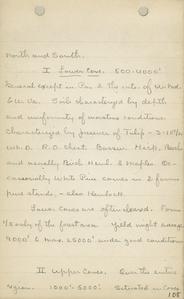 North and South.
I Lower Cove. 500-4000'.
General except in Pa. & the mts. of W. Md.
& W. Va. Soils characterized by depth
and uniformity of moisture conditions.
Characterized by presence of Tulip - 3-10%
R.O. Chest. Basswd. Hick. Beech
and usually Birch Heml. & Maples. Oc-
casionally White Pine comes in &
pure stands. - also Hemlock.
Lower coves are often cleared. Form
only of the forest area. Yield might average
4000' & max. 25000' under good conditions.
II Upper Coves. Over the entire
region. 1000'-5000'. Saturated in Coves
105